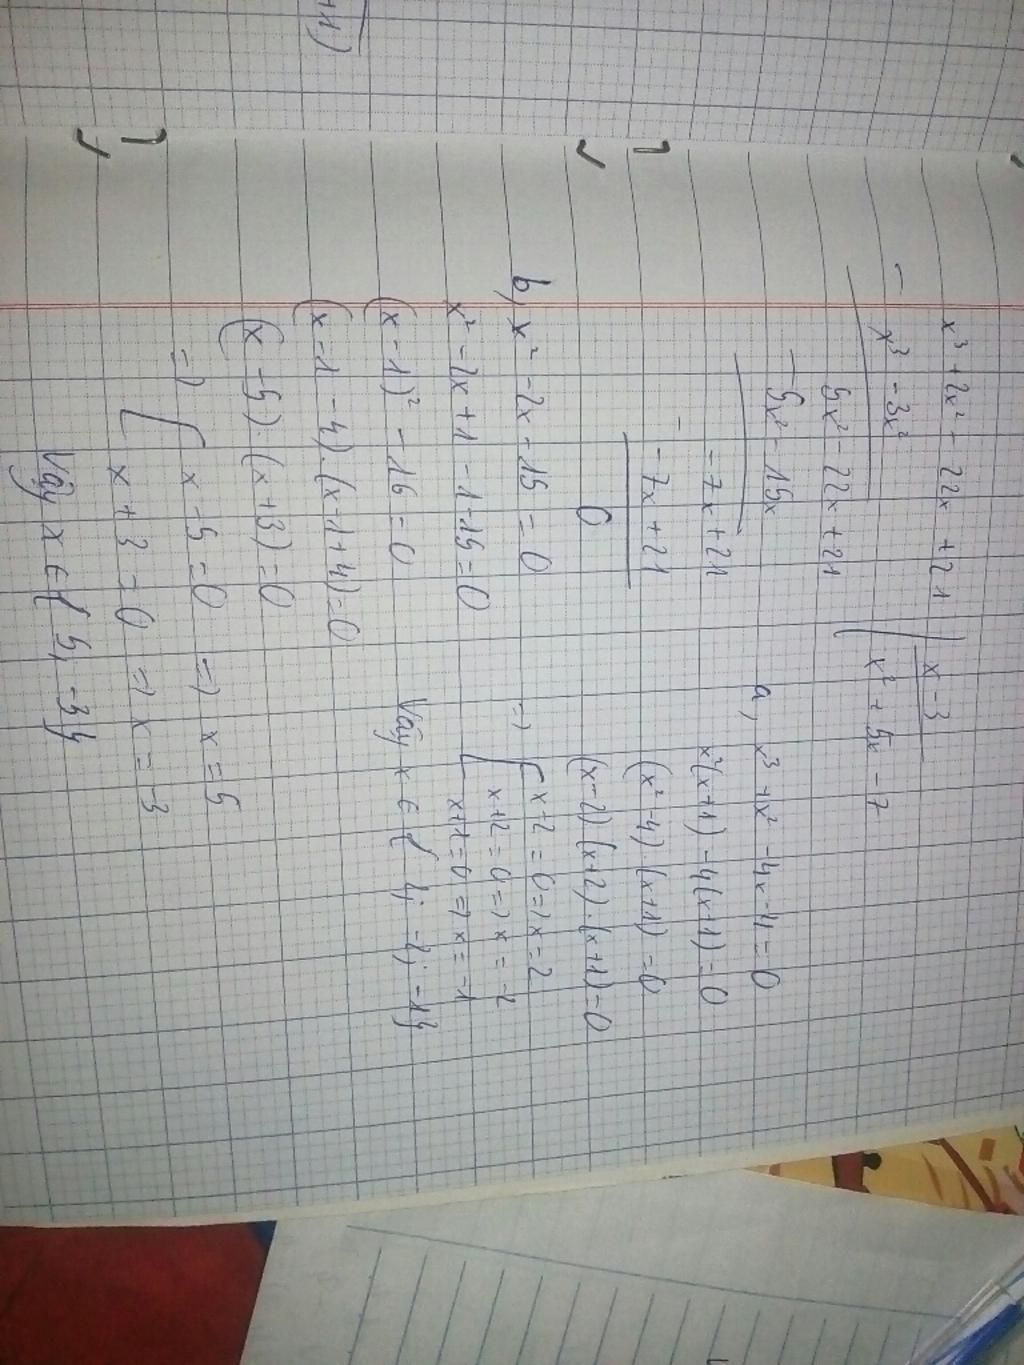 +1)
x³ + 2x² - 22x + 21 | x - 3
- x³ - 3x² x² + 5x - 7
5x² - 22x + 21
- 5x² - 15x
- 7x + 21
- - 7x + 21
0
a, x³ + x² - 4x - 4 = 0
x²(x+1) - 4(x+1) = 0
(x² - 4).(x+1) = 0
(x-2)(x+2).(x+1) = 0
=> [ x + 2 = 0 => x = 2
x + 2 = 0 => x = -2
x + 1 = 0 => x = -1
Vậy x ∈ { 2; -2; -1}
b, x² - 2x - 15 = 0
x² - 2x + 1 - 1 - 15 = 0
(x - 1)² - 16 = 0
(x - 1 - 4).(x - 1 + 4) = 0
(x - 5).(x + 3) = 0
=> [ x - 5 = 0 => x = 5
x + 3 = 0 => x = -3
Vậy x ∈ { 5, -3}